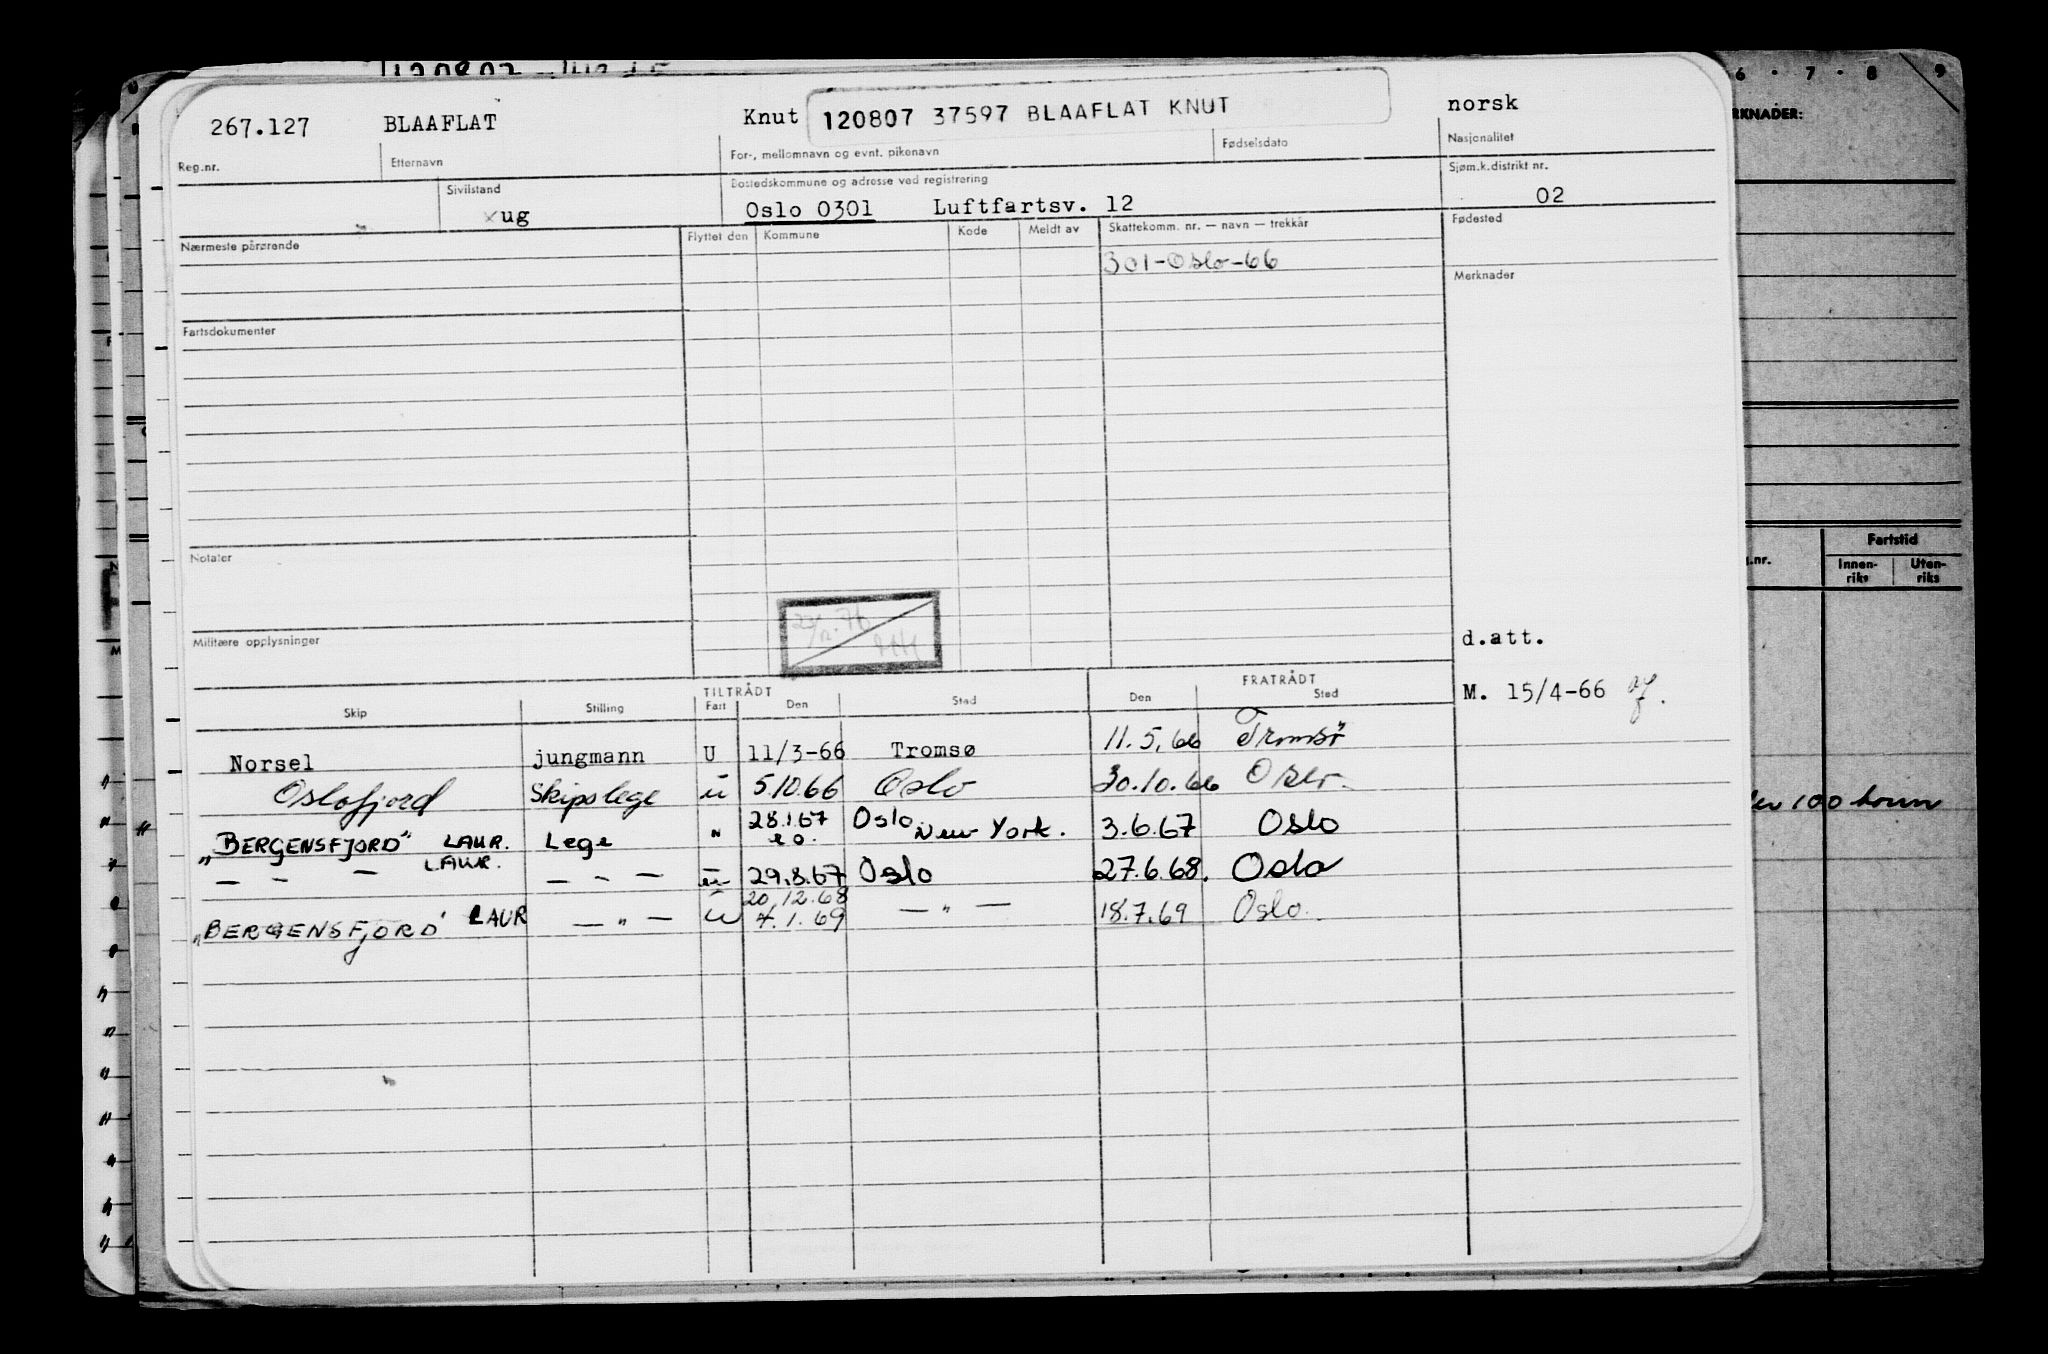 267.127 BLAAFLAT Knut 120807 37597 BLAAFLAT KNUT norsk
Reg.nr. Etternavn For-, mellomnavn og evnt. pikenavn Fødselsdato Nasjonalitet
Sivilstand Bostedskommune og adresse ved registrering Sjøm.k.distrikt nr.
xug Oslo 0301 Luftfartsv. 12 02
Nærmeste pårørende Flyttet den Kommune Kode Meldt av Skattekomm. nr. — navn — trekkår Fødested
301-Oslo-66
Merknader
Fartsdokumenter
Notater
Militære opplysninger
d.att.
M. 15/4-66
TILTRÅDT FRATRÅDT
Skip Stilling Fart Den Sted Den Sted
Norsel jungmann U 11/3-66 Tromsø 11.5.66 Tromsö
Oslofjord Skipslege u 5/10.66 Oslo 30.10.66 Oslo
28.1.67 Oslo
„BERGENSFJORD" LAUR. Lege " New York. 3.6.67 Oslo
— - — LAUR. — - — u 29.8.67 Oslo 27.6.68. Oslo
20.12.68
„BERGENSFJORD" LAUR — „ — u 4.1.69 — „ — 18.7.69 Oslo.
6 · 7 · 8 9
RKNADER:
.nr. Fartstid
Innen-riks Uten-riks
100